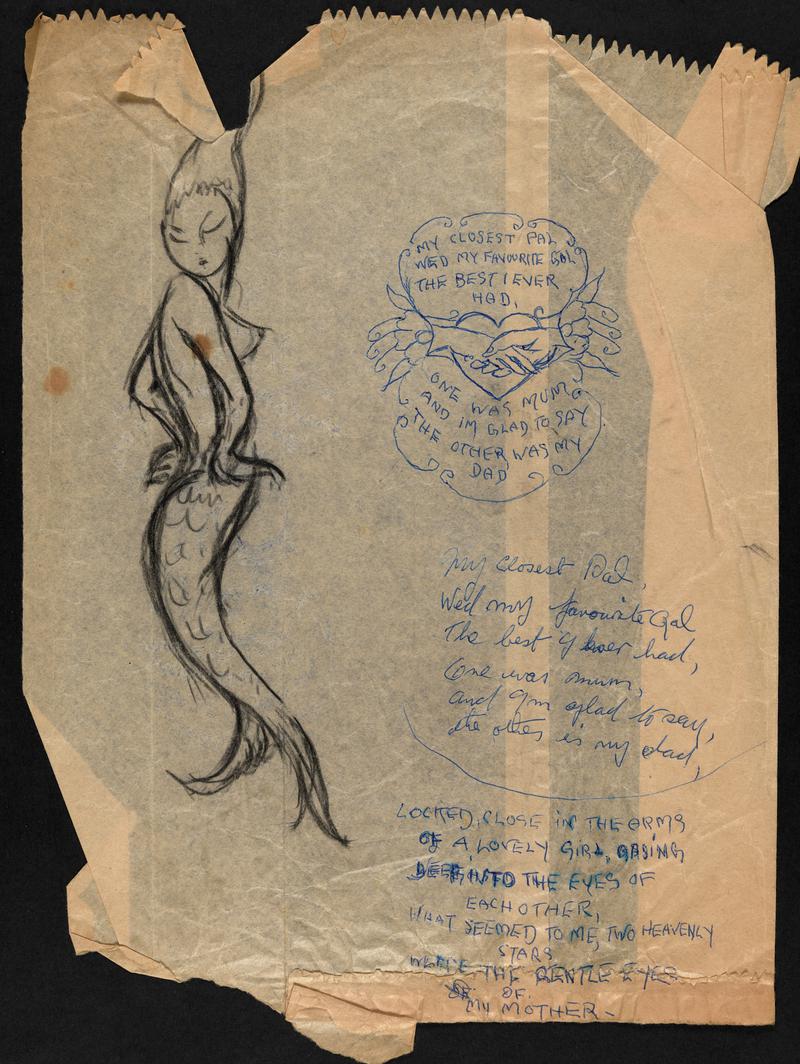 MY CLOSEST PAL
WED MY FAVOURITE GAL
THE BEST I EVER
HAD,
ONE WAS MUM,
AND IM GLAD TO SAY
THE OTHER WAS MY
DAD
My closest Pal,
Wed my favourite Gal
The best I ever had,
One was mum,
and I'm glad to say,
the other is my dad,
LOCKED, CLOSE IN THE ARMS
OF A LOVELY GIRL, GASING
DEEP INTO THE EYES OF
EACH OTHER,
WHAT SEEMED TO ME, TWO HEAVENLY
STARS
WERE THE GENTLE EYES
OF
MY MOTHER -